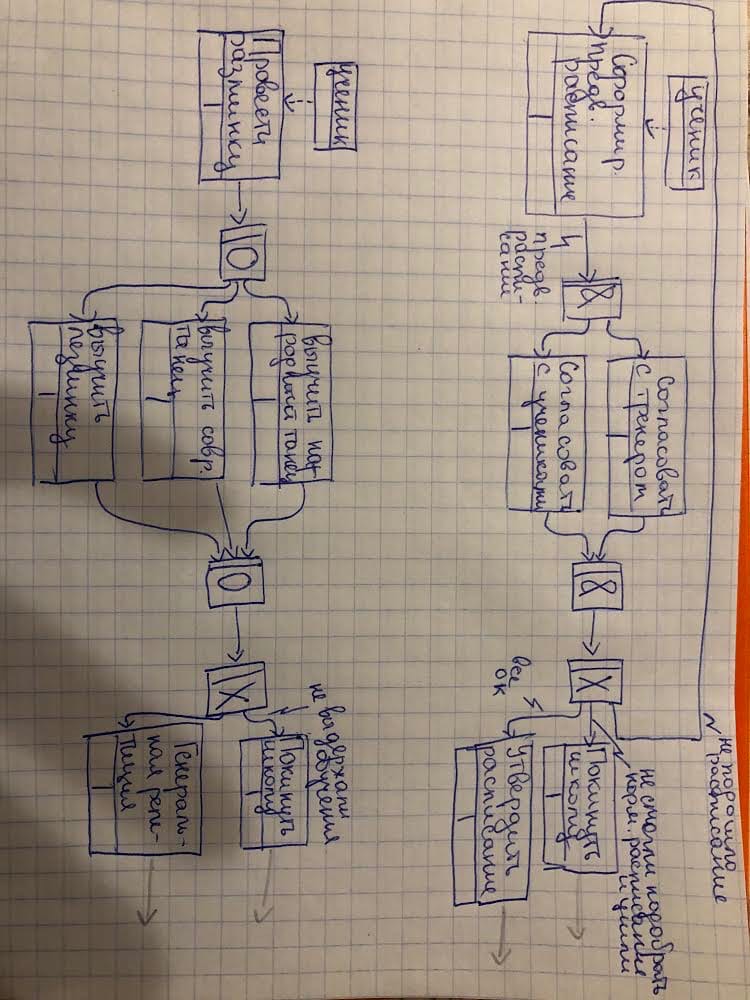 не подошло
расписание
ученик
Сформир.
предв.
расписание
предв.
распи-
сание
&
Согласовать
с тренером
Согласовать
с учениками
&
X
не смогли подобрать
норм. расписание
и ушли
Покинуть
школу
все
ок
Утвердить
расписание
ученик
Провести
разминку
O
выучить на-
родный танец
выучить совр.
танец
выучить
лезгинку
O
X
не выдержали
обучения
Покинуть
школу
Генераль-
ная репе-
тиция